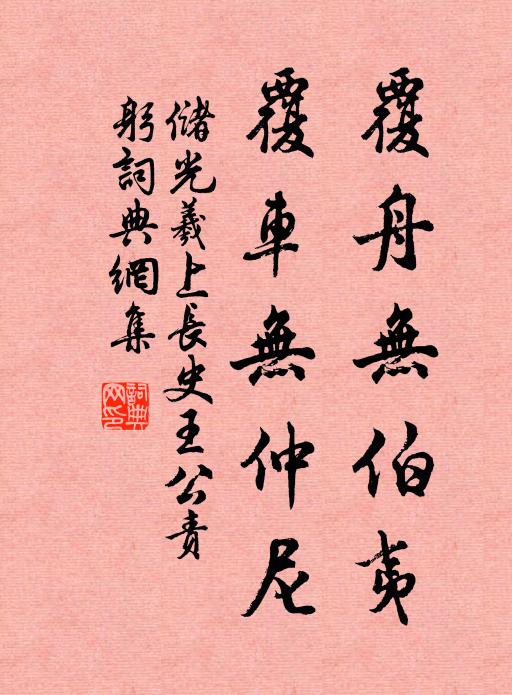 覆舟無伯夷
覆車無仲尼
儲光羲上長史王公責
躬詞典網集
詞典網印